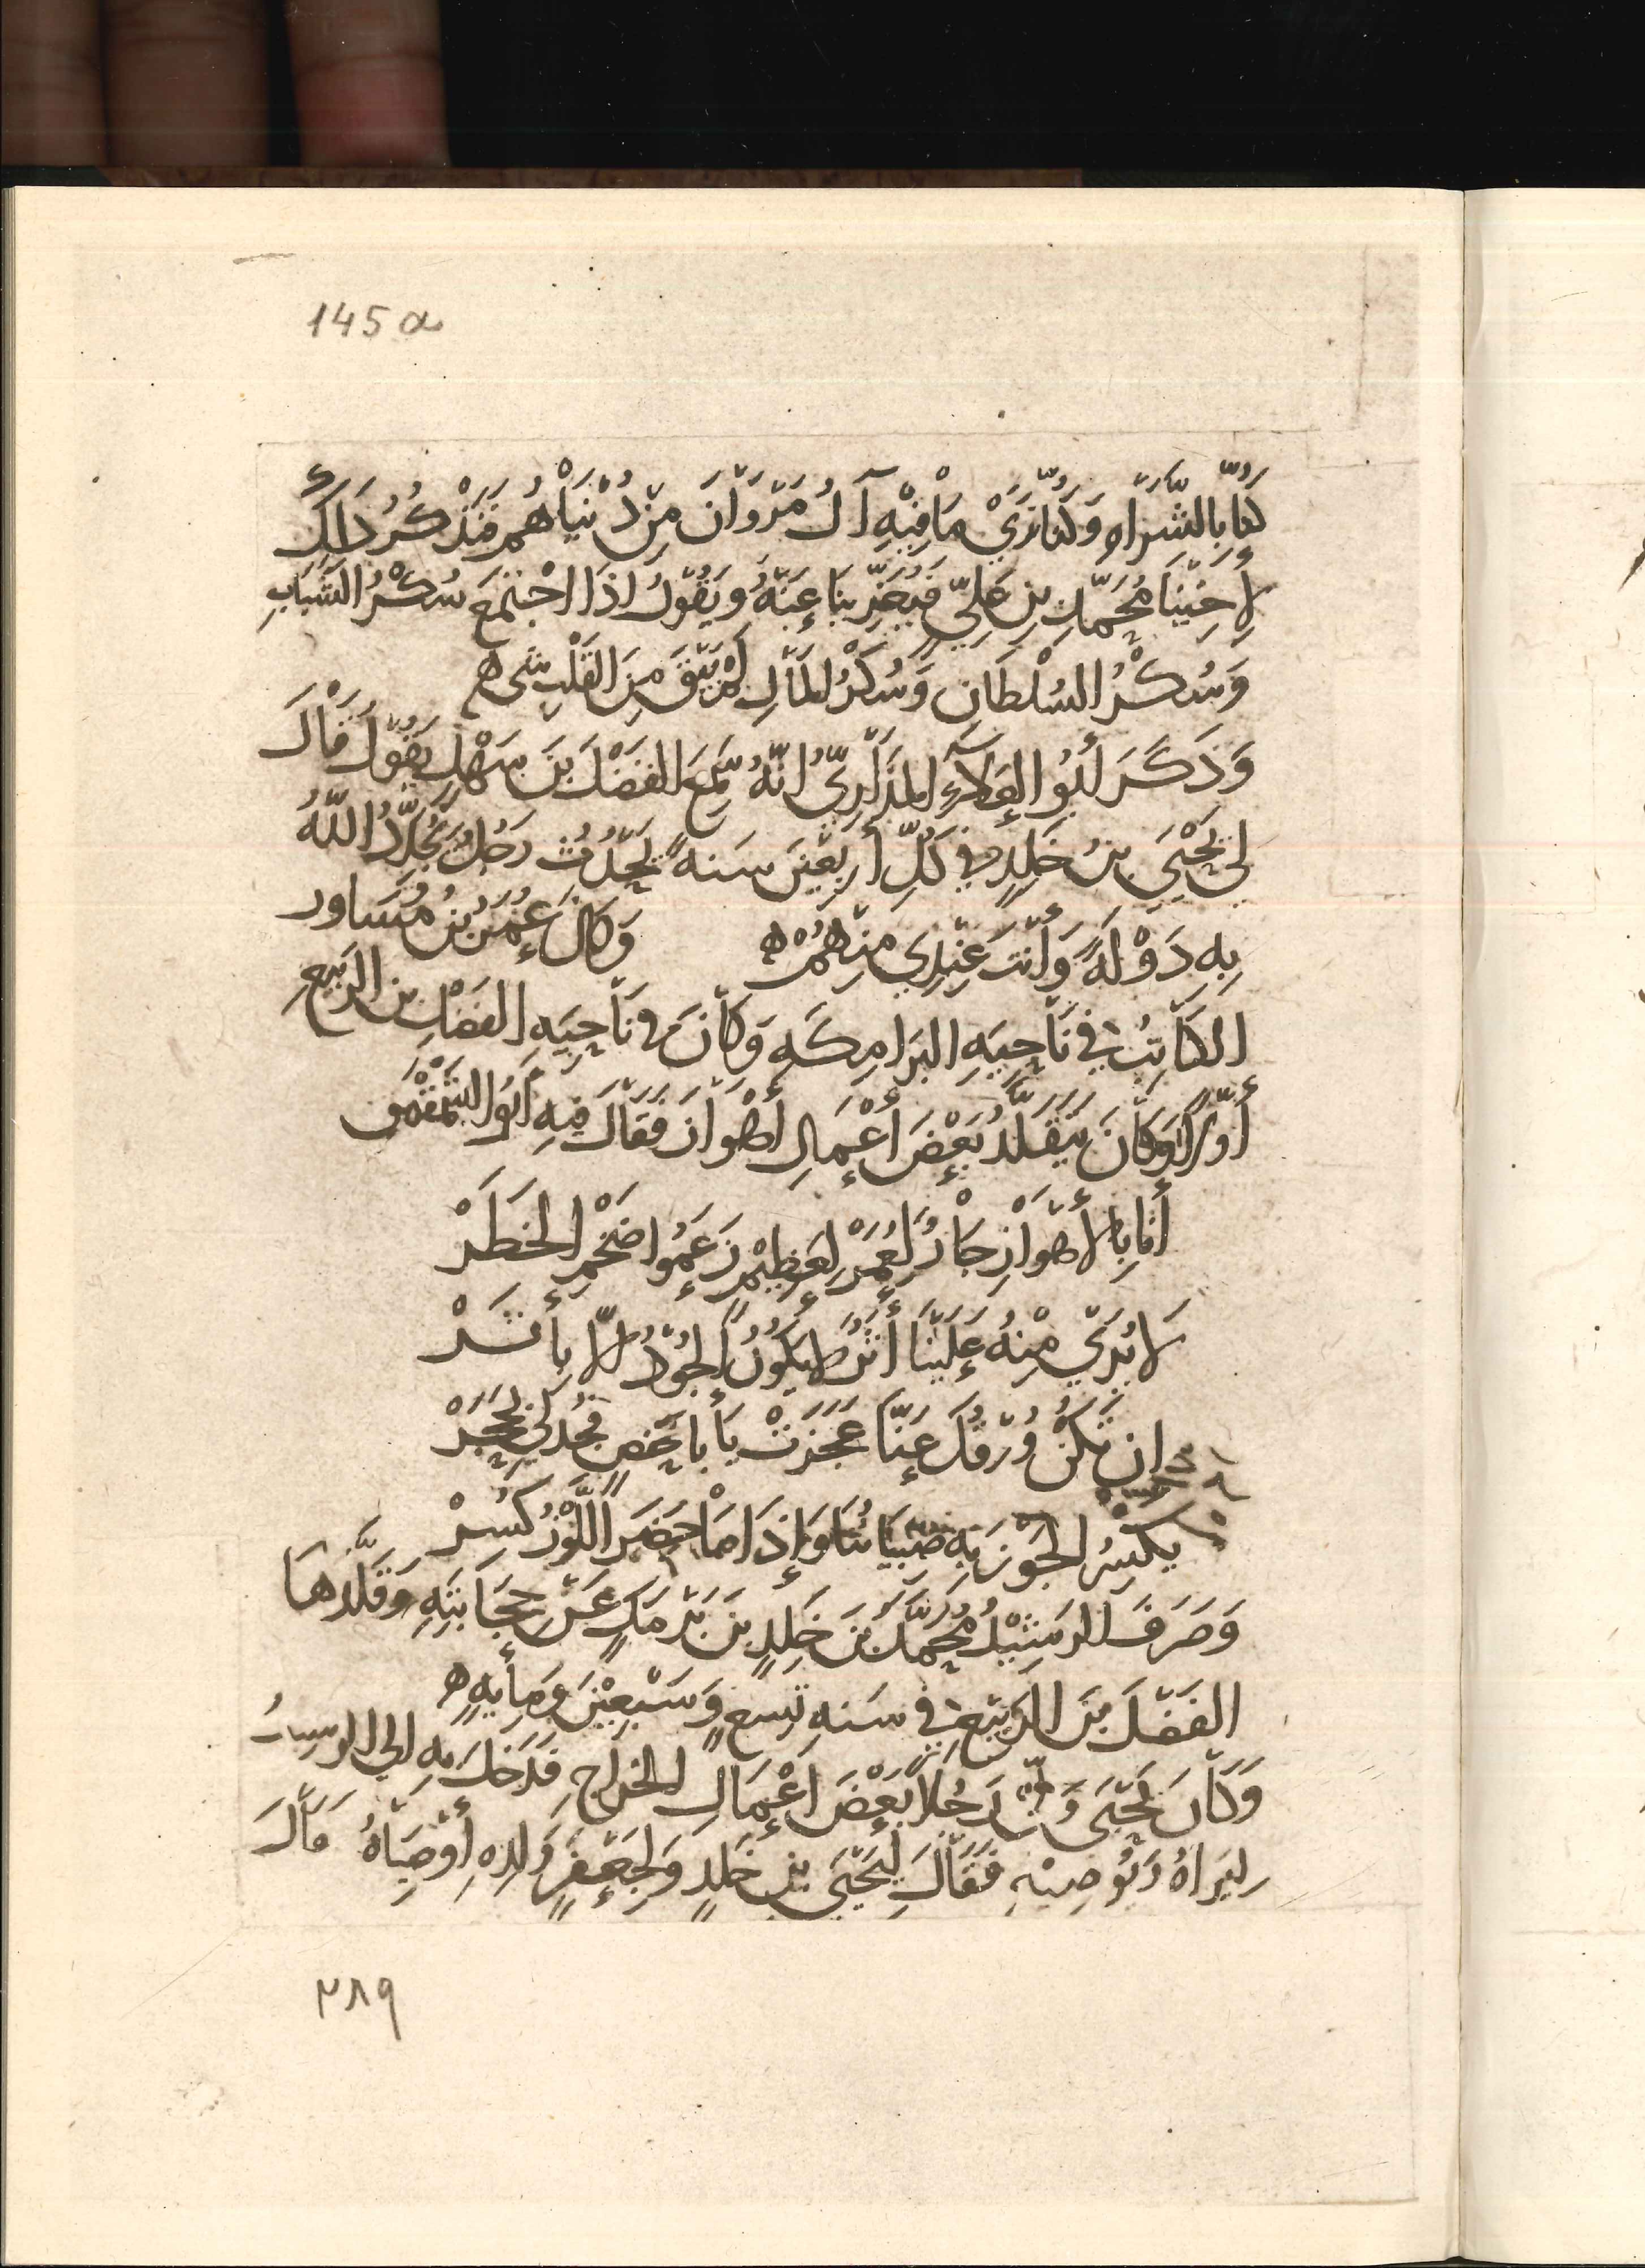 145a
كُنَّا بِالشَّرَاهِ وَكُنَّا نَرَيْ مَا فِيْهِ آلُ مَرْوَانَ مِنْ دُنْيَاهُمْ فَنَذْكُرُ ذَاكَ
لِأَخِيْنَا مُحَمَّدِ بنِ عَلِيٍّ فَيُعَزِّيْنَا عَنْهُ وَيَقُوْلُ اذَا اجْتَمَعَ سُكْرُ الشَّبَابِ
وَسُكْرُ السُلْطَانِ وَسُكْرُ المَالِ لَمْ يَبْقَ مِنَ القَلْبِ شى ه
وَذَكَرَ أَبُو العَلَآءِ المَذَارِيُّ انَّهُ سَمِعَ الفَضْلَ بْنَ سَهْلٍ يَقُوْلُ قَالَ
لي يَحْيَي بنُ خَلِدٍ في كُلِّ أَرْبَعِيْنَ سَنَه يَحْدُثُ رَجُلٌ يُجَدِّدُ اللّهُ
بِهِ دَوْلَةً وَأَنْتَ عِنْدِي مِنْهُمْ ه وَكَانَ عُمَرُ بْنُ مُسَاور
الكَاتِبُ في نَاحِيَهِ البَرَامِكَهِ وَكَانَ في نَاحِيَهِ الفَضْلِ بن الرَبيعِ
أَوَّلًا وَكَانَ يَتَقَلَّدُ بَعْضَ أَعْمَالِ أَهْوَازَ فَقَالَ فِيهِ أَبُو الشَمَقْمَقِ
أَنَا بِالأَهْوَازِ جَارٌ لِعُمَرْ لِعَظِيْمٍ زَعَمُوا ضَخْمِ الخَطَرْ
لَا يُرَيْ مِنْهُ عَلَيْنَا أَثَرٌ لا يَكُوْنُ الجُوْدُ إلّا بِأَثَرْ
ان تَكُنْ وُرْقُكَ عَنَّا عَجَزَتْ يَأَبَا حَفصٍ فَجُدْ لي بِحَجَرْ
يكْسِرُ الجَوْزَ بِهِ صِبْيَانُنَا وَإِذَا مَا حَضَرَ اللَّوْزُ كُسِرْ
وَصَرَفَ الرَشِيْدُ مُحَمَّدَ بْنَ خَلِدِ بْنَ بَرْمَكٍ عَنْ حِجَابَتِهِ وَقَلَّدَهَا
الفَضْلَ بْنَ الرَبيْعِ في سَنهِ تِسعٍ وَسَبْعِيْنَ وَمِأيهٍ ه
وَكَانَ يَحْيَى وَلَّى رَجُلًا بَعْضَ اعْمَالِ الخَرَاجِ فَدَخَلَ بِهِ الى الرشيدُ
لِيَرَاهُ وَيُوْصِيْهِ فَقَالَ لِيَحْيَى بن خَلِدٍ وَلِجَعْفَرٍ وَلَدِهِ أَوْصِيَاهُ قَالَ
٢٨٩